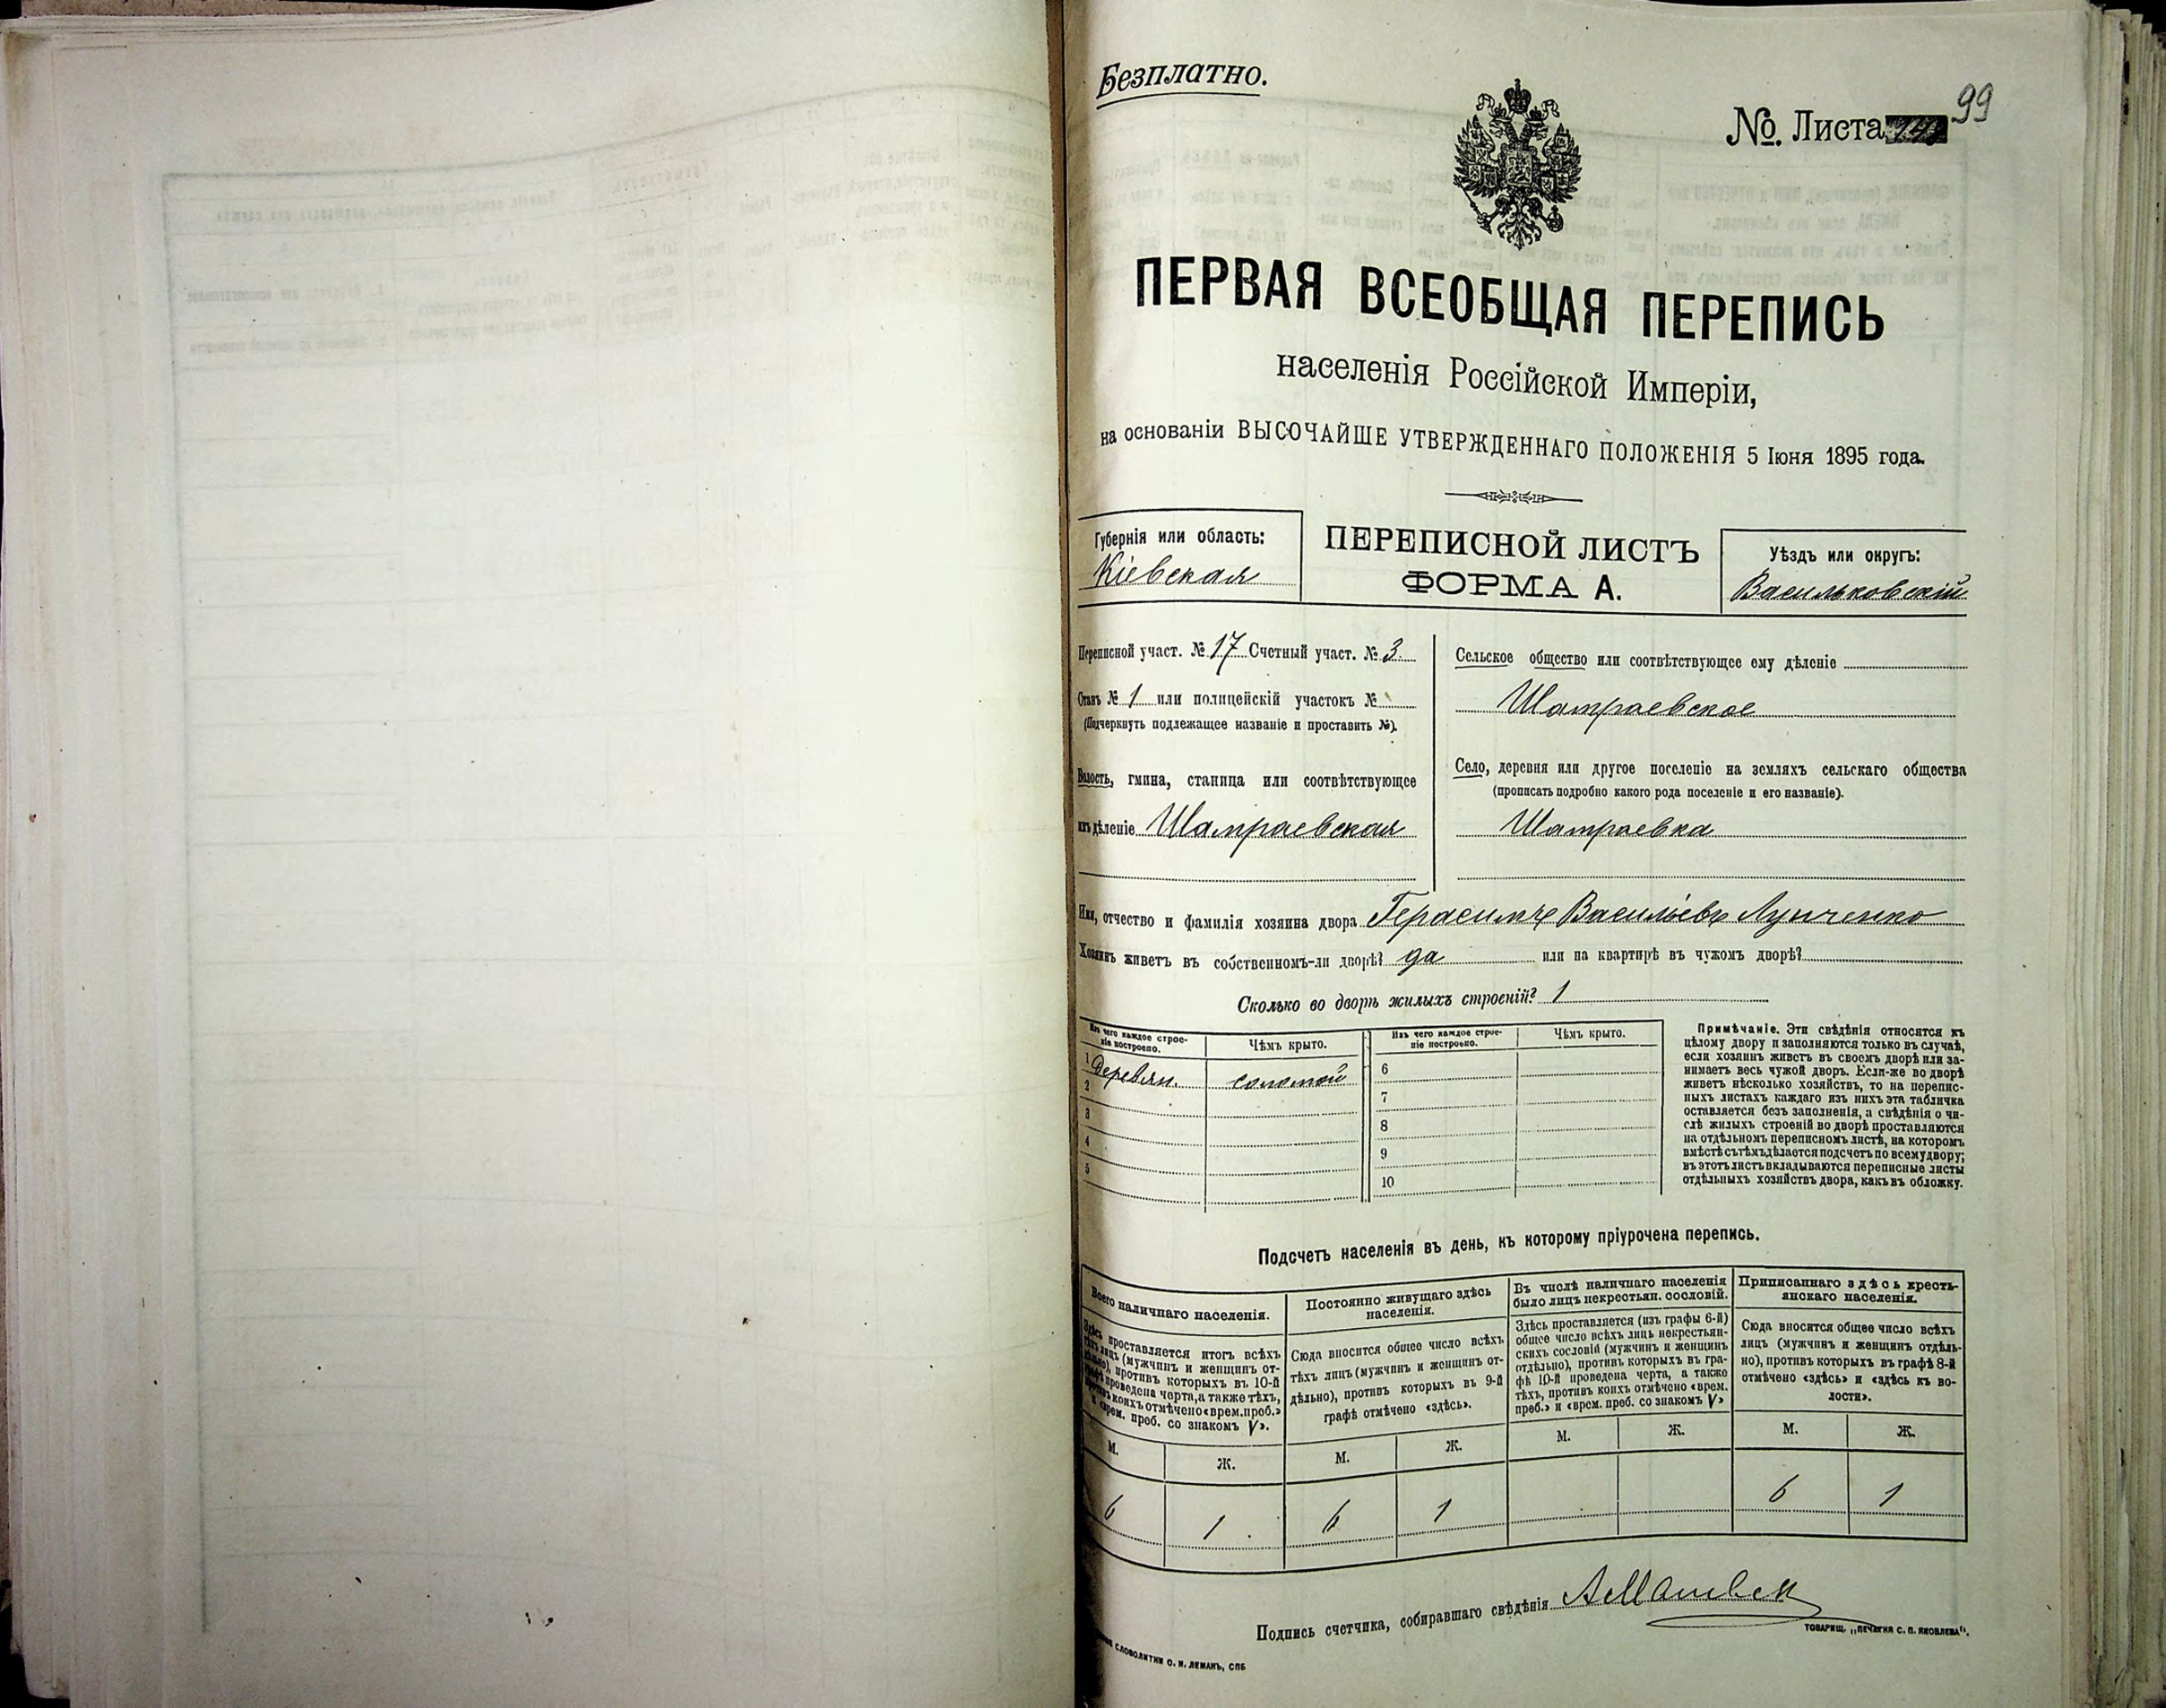 Безплатно.
№. Листа 99
ПЕРВАЯ ВСЕОБЩАЯ ПЕРЕПИСЬ
населенія Россійской Имперіи,
на основаніи ВЫСОЧАЙШЕ УТВЕРЖДЕННАГО ПОЛОЖЕНІЯ 5 Іюня 1895 года.
Губернія или область:
Кіевская
ПЕРЕПИСНОЙ ЛИСТЪ
ФОРМА А.
Уѣздъ или округъ:
Васильковскій
Переписной участ. № 17 Счетный участ. № 3.
Станъ № 1 или полицейскій участокъ №
(Подчеркнуть подлежащее названіе и проставить №).
Волость, гмина, станица или соотвѣтствующее
имъ дѣленіе Шамраевская
Сельское общество или соотвѣтствующее ему дѣленіе
Шамраевское
Село, деревня или другое поселеніе на земляхъ сельскаго общества
(прописать подробно какого рода поселеніе и его названіе).
Шамраевка
Имя, отчество и фамилія хозяина двора Герасимъ Васильевъ
Хозяинъ живетъ въ собственномъ-ли дворѣ? да или на квартирѣ въ чужомъ дворѣ?
Сколько во дворѣ жилыхъ строеній? 1
Изъ чего каждое строе-
ніе построено.
Чѣмъ крыто.
Изъ чего каждое строе-
ніе построено.
Чѣмъ крыто.
1 Деревян. соломой
2
3
4
5
6
7
8
9
10
Примѣчаніе. Эти свѣдѣнія относятся къ
цѣлому двору и заполняются только въ случаѣ,
если хозяинъ живетъ въ своемъ дворѣ или за-
нимаетъ весь чужой дворъ. Если-же во дворѣ
живетъ нѣсколько хозяйствъ, то на перепис-
ныхъ листахъ каждаго изъ нихъ эта табличка
оставляется безъ заполненія, а свѣдѣнія о чи-
слѣ жилыхъ строеній во дворѣ проставляются
на отдѣльномъ переписномъ листѣ, на которомъ
вмѣстѣ съ тѣмъ дѣлается подсчетъ по всему двору;
въ этотъ листъ вкладываются переписные листы
отдѣльныхъ хозяйствъ двора, какъ въ обложку.
Подсчетъ населенія въ день, къ которому пріурочена перепись.
Всего наличнаго населенія.
Здѣсь проставляется итогъ всѣхъ
тѣхъ лицъ (мужчинъ и женщинъ от-
дѣльно), противъ которыхъ въ 10-й
графѣ проведена черта, а также тѣхъ,
противъ коихъ отмѣчено «врем. преб.»
и «врем. преб. со знакомъ V».
М.
Ж.
6
1
Постоянно живущаго здѣсь
населенія.
Сюда вносится общее число всѣхъ
тѣхъ лицъ (мужчинъ и женщинъ от-
дѣльно), противъ которыхъ въ 9-й
графѣ отмѣчено «здѣсь».
М.
Ж.
6
1
Въ числѣ наличнаго населенія
было лицъ некрестьян. сословій.
Здѣсь проставляется (изъ графы 6-й)
общее число всѣхъ лицъ некрестьян-
скихъ сословій (мужчинъ и женщинъ
отдѣльно), противъ которыхъ въ гра-
фѣ 10-й проведена черта, а также
тѣхъ, противъ коихъ отмѣчено «врем.
преб.» и «врем. преб. со знакомъ V»
М.
Ж.
Приписаннаго здѣсь кресть-
янскаго населенія.
Сюда вносится общее число всѣхъ
лицъ (мужчинъ и женщинъ отдѣль-
но), противъ которыхъ въ графѣ 8-й
отмѣчено «здѣсь» и «здѣсь къ во-
лости».
М.
Ж.
6
1
Подпись счетчика, собиравшаго свѣдѣнія
ТОВАРИЩ. „ПЕЧАТНЯ С. П. ЯКОВЛЕВА".
СЛОВОЛИТНИ О. И. ЛЕМАНЪ, СПБ